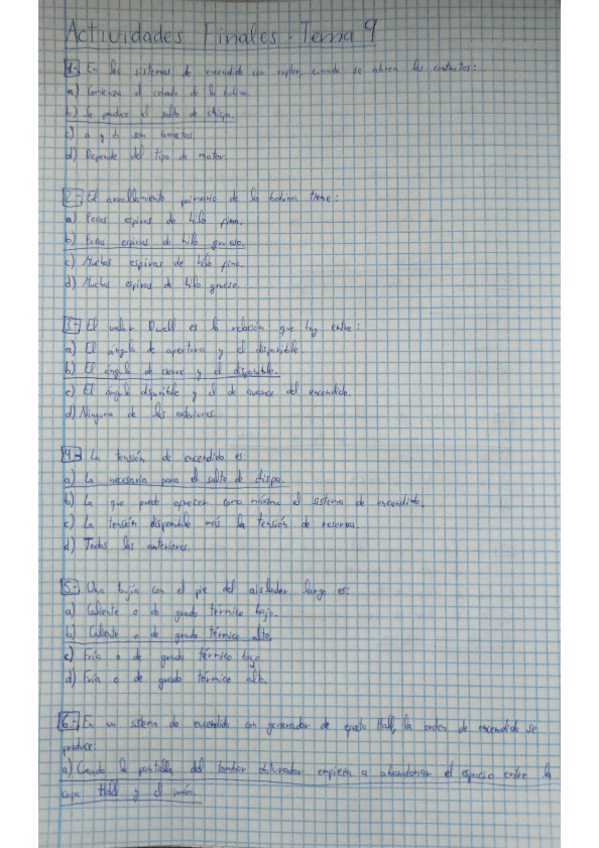 Actividades Finales - Tema 9
1- En los sistemas de encendido con ruptor, cuando se abren los contactos:
a) Comienza el cerrado de la bobina.
b) Se produce el salto de chispa.
c) a y b son correctas
d) Depende del tipo de motor.
2- El arrollamiento primario de la bobina tiene:
a) Pocas espiras de hilo fino.
b) Pocas espiras de hilo grueso.
c) Muchas espiras de hilo fino.
d) Muchas espiras de hilo grueso.
3- El valor Dwell es la relación que hay entre:
a) El ángulo de apertura y el disponible.
b) El ángulo de cierre y el disponible.
c) El ángulo disponible y el de avance del encendido.
d) Ninguna de las anteriores.
4- La tensión de encendido es:
a) La necesaria para el salto de chispa.
b) La que puede ofrecer como máximo el sistema de encendido.
c) La tensión disponible más la tensión de reserva.
d) Todas las anteriores.
5- Una bujía con el pie del aislador largo es:
a) Caliente o de grado térmico bajo.
b) Caliente o de grado térmico alto.
c) Fría o de grado térmico bajo
d) Fría o de grado térmico alto.
6- En un sistema de encendido con generador de efecto Hall, la orden de encendido se
produce:
a) Cuando la pantalla del tambor obturador empieza a abandonar el espacio entre la
capa Hall y el imán.